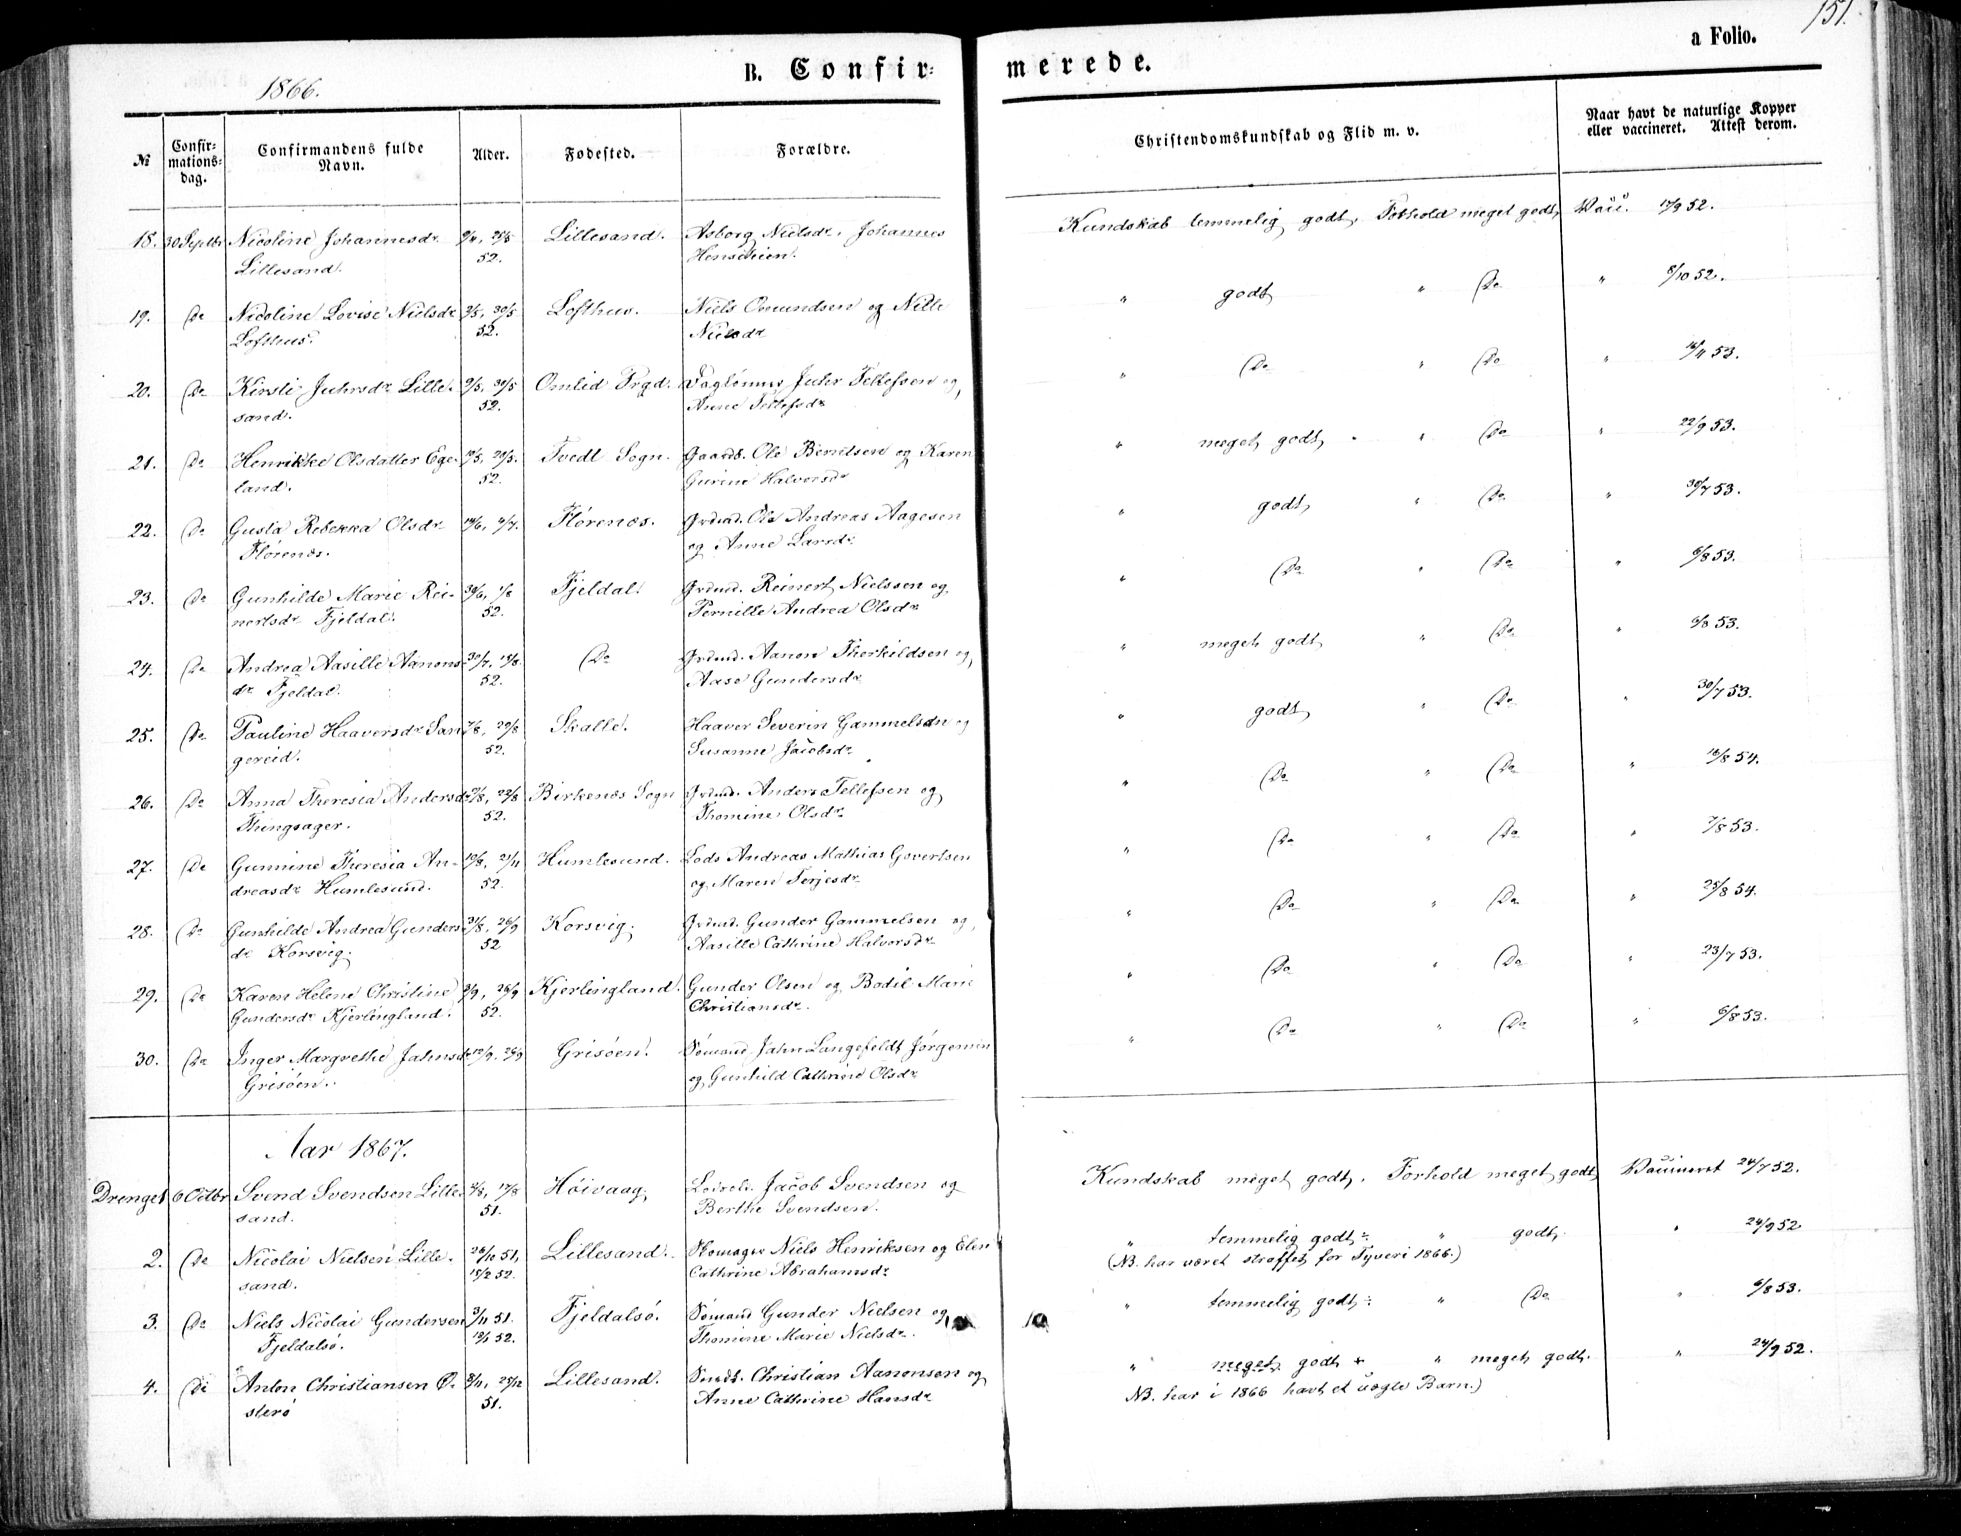 151.
a Folio.
B. Confir-
merede.
1866.
№
Confir-
mations-
dag.
Confirmandens fulde
Navn.
Alder.
Fødested.
Forældre.
Christendomskundskab og Flid m. v.
Naar havt de naturlige Kopper
eller vaccineret. Attest derom.
18. 30 Septbr Nicoline Johannesdr 9/4, 28/5 Lillesand. Asborg Nielsdr. Johannes Kundskab temmelig godt, Forhold meget godt, Vacc. 17/9 52.
Lillesand. 52.
19. Do Nicoline Lovise Nielsdr 3/5, 30/5 Lofthus. Niels Omundsen og Nille " godt " Do " 8/10 52.
Lofthus. 52. Nielsdr
20. Do Kirsti Juhrsdr Lille- 9/5, 30/5 Omlid Prgd. Tellefsen og, " Do " Do " 16/11 53.
sand. 52. Anne Tellefsdr
21. Do Henrikke Olsdatter Ege- 19/5, 29/5. Tvedt Sogn. Gaardb. Ole Berntsen og Karen " meget godt, " Do " 22/9 53.
land. 52. Gurine Halvorsdr
22. Do Gusta Rebekka Olsdr 14/6, 4/7. Flørenæs. Grdmd. Ole Andreas Aagesen " godt, " Do " 30/7 53.
Flørenæs. og Anne Larsdr
23. Do Gunhilde Marie Rei- 30/6, 1/8 Fjeldal. Grdmd. Reinert Nielssen og " Do " Do " 6/8 53.
nertsdr Fjeldal. 52. Pernille Andrea Olsdr
24. Do Andrea Aasille Aanons- 30/7, 15/8 Do Grdmd. Aanon Therkildsen og, " meget godt " Do " 6/8 53.
dr Fjeldal. 52. Aase Gundersdr
25. Do Pauline Haaversdr San- 7/8, 29/8 Skalle. Haaver Severin Gammelsen og " godt, " Do " 30/7 53.
gereid. 52. Susanne Jacobsdr
26. Do Anna Theresia Andersdr 7/8, 22/8 Birkenæs Sogn Grdmd. Anders Tellefsen og " Do " Do " 16/8 54.
Thingsager. 52. Thomine Olsdr
27. Do Gunnine Theresia An- 19/8, 21/11 Humlesund. Lods Andreas Mathias Govertsen " Do " Do " 7/8 53.
dreasdr Humlesund. 52. og Maren Terjesdr
28. Do Gunhilde Andrea Gunders- 31/8, 26/9 Korsvig. Grdmd. Gunder Gammelsen og, " Do " Do " 25/8 54.
dr Korsvig. 52 Aasille Cathrine Halvorsdr
29. Do Karen Helene Christine 3/9, 26/9 Kjerlingland. Gunder Olsen og Bodil Marie " Do " Do " 23/7 53.
Gundersdr Kjerlingland. 52. Christiansdr.
30. Do Inger Margrethe Jahnsdr 12/9. 26/9 Grisøen. Sømand Jahn Langefeldt Jørgensen " Do " Do " 6/8 53.
Grisøen. og Gunhild Cathrine Olsdr
Aar 1867.
Drenget 6 Octbr Svend Svendsen Lille- 4/8, 17/8 Høivaag, Jacob Svendsen og Kundskab meget godt, Forhold meget godt, Vaccineret 24/7 52.
sand. 51. Berthe Svendsen.
2. Do Nicolai Nielsen Lille- 26/10 51, Lillesand. Skomager Niels Henriksen og Elen " temmelig godt÷ " godt, " 24/9 52
sand. 15/2 52. Cathrine Abrahamsdr (NB. har været straffet for Tyveri 1866.)
3. Do Niels Nicolai Gundersen 3/11 51. Fjeldalsø. Sømand Gunder Nielsen og " temmelig godt÷ " Do " 6/8 53.
Fjeldalsø. 19/1 52. Thomine Marie Nielsdr.
4. Do Anton Christiansen Ø- 8/11, 25/12 Lillesand. Christian Aanonsen og " meget godt + " meget godt. " 24/9 52.
sterø 51. Anne Cathrine Hansdr NB. har i 1866 havt et uægte Barn.)